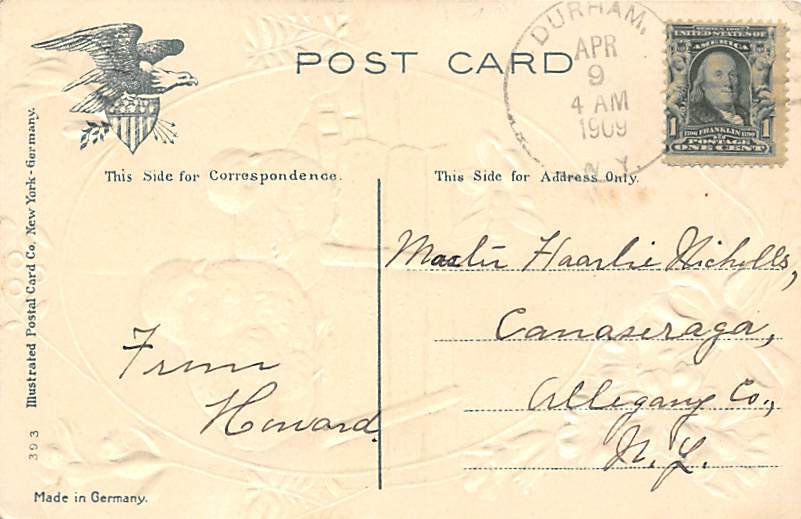 POST CARD
DURHAM,
APR
9
4 AM
1909
N.Y.
SERIES 1902
UNITED STATES OF
AMERICA
1 1706 FRANKLIN 1790 1
POSTAGE
ONE CENT
This Side for Correspondence.
This Side for Address Only.
Master Haarlie Nicholls,
Canaseraga,
Allegany Co.,
N.Y.
From
Howard
393 Illustrated Postal Card Co., New York-Germany.
Made in Germany.